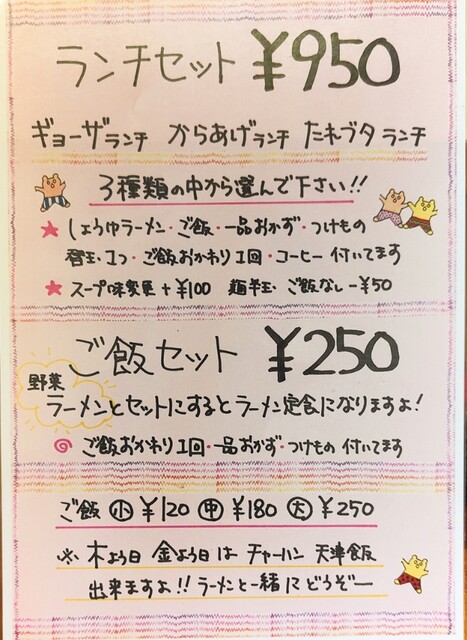 ランチセット ¥950
ギョーザランチ からあげランチ たれブタランチ
3種類の中から選んで下さい!!
★ しょうゆラーメン・ご飯・一品おかず・つけもの
替玉1つ・ご飯おかわり1回・コーヒー付いてます
★ スープ味変更+¥100 麺半玉 ご飯なし-¥50
ご飯セット ¥250
野菜
ラーメンとセットにするとラーメン定食になりますよ!
ご飯おかわり1回・一品おかず・つけもの 付いてます
ご飯 小 ¥120 中 ¥180 大 ¥250
※ 木よう日 金よう日は チャーハン 天津飯
出来ますよ!! ラーメンと一緒にどうぞー